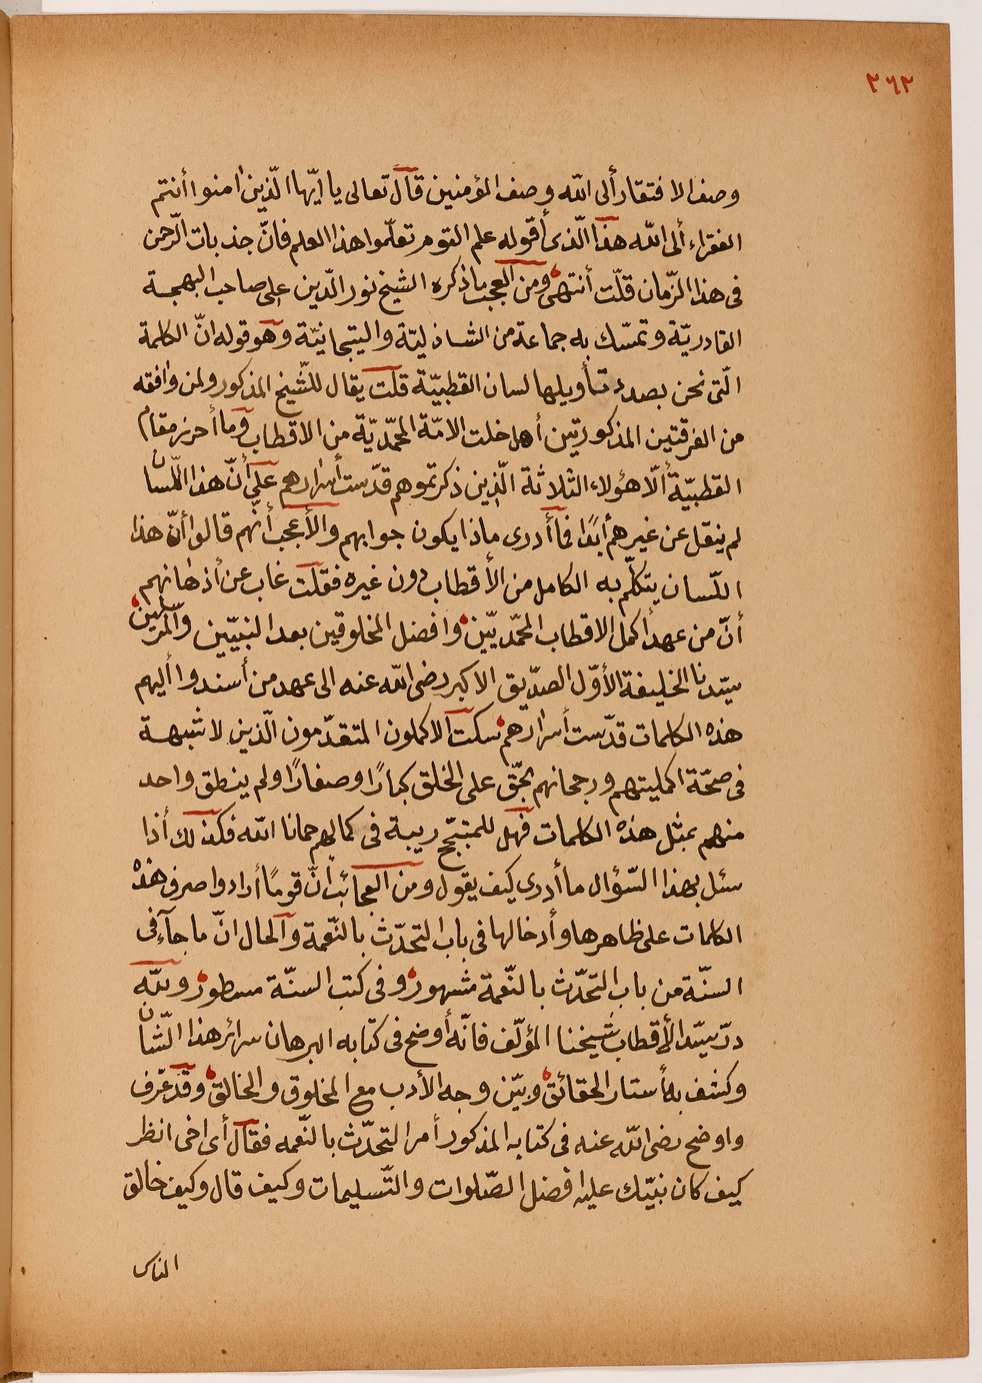 ٢٦٢
وصف الافتقار ألى الله وصف المؤمنين قال تعالى يا ايّها الّذين امنوا أنتم
الفقراء ألى الله هذا الّذى أقوله علم القوم تعلّموا هذا العلم فانّ جذبات الرّحمن
فى هذا الزّمان قلّت أنتهى ومن العجب ما ذكره الشيخ نور الدّين على صاحب البهجة
القادريّة وتمسّك به جماعة من الشاذليّة والتيجانيّة وهو قوله انّ الكلمة
الّتى نحن بصدد تأويلها لسان القطبيّة قلت يقال للشّيخ المذكور ولمن وافقه
من الفرقتين المذكورتين أهل خلت الامّة المحمّديّة من الاقطاب وما أحرز مقام
القطبيّة ألّا هؤلاء الثلاثة الّذين ذكرتموهم قدّست أسرارهم على أنّ هذا اللّسان
لم ينقل عن غيرهم أبدًا فما أدرى ماذا يكون جوابهم والأعجب أنّهم قالوا أنّ هذا
اللّسان يتكلّم به الكامل من الأقطاب دون غيره فقلت غاب عن أذهانهم
أنّ من عهد أكمل الاقطاب المحمّديّين وافضل المخلوقين بعد النبيّين والمرسلين
سيّدنا الخليفة الأوّل الصدّيق الاكبر رضى الله عنه الى عهد من أسندوا أليهم
هذه الكلمات قدّست أسرارهم سكت الاكملون المتقدّمون الّذين لا شبهة
فى صحّة اكمليتهم ورجحانهم بحقّ على الخلق كبارًا وصغارًا ولم ينطق واحد
منهم بمثل هذه الكلمات فهل للمتبجّح ريبة فى كمالهم حمانا الله فكذلك أذا
سئل بهذا السّؤال ما أدرى كيف يقول ومن العجائب أنّ قومًا أرادوا صرف هذه
الكلمات على ظاهرها وأدخالها فى باب التحدّث بالنّعمة والحال انّ ما جآء فى
السنّة من باب التحدّث بالنّعمة مشهور وفى كتب السنّة مسطور ولله
درّ سيّد الأقطاب شيخنا المؤلّف فانّه أوضح فى كتابه البرهان سرائر هذا الشّان
وكشف به أستار الحقائق وبيّن وجه الأدب مع المخلوق والخالق وقد عرّف
واوضح رضى الله عنه فى كتابه المذكور أمر التحدّث بالنّعمه فقال أى اخى انظر
كيف كان نبيّك عليه افضل الصّلوات والتّسليمات وكيف قال وكيف خالق
الناس